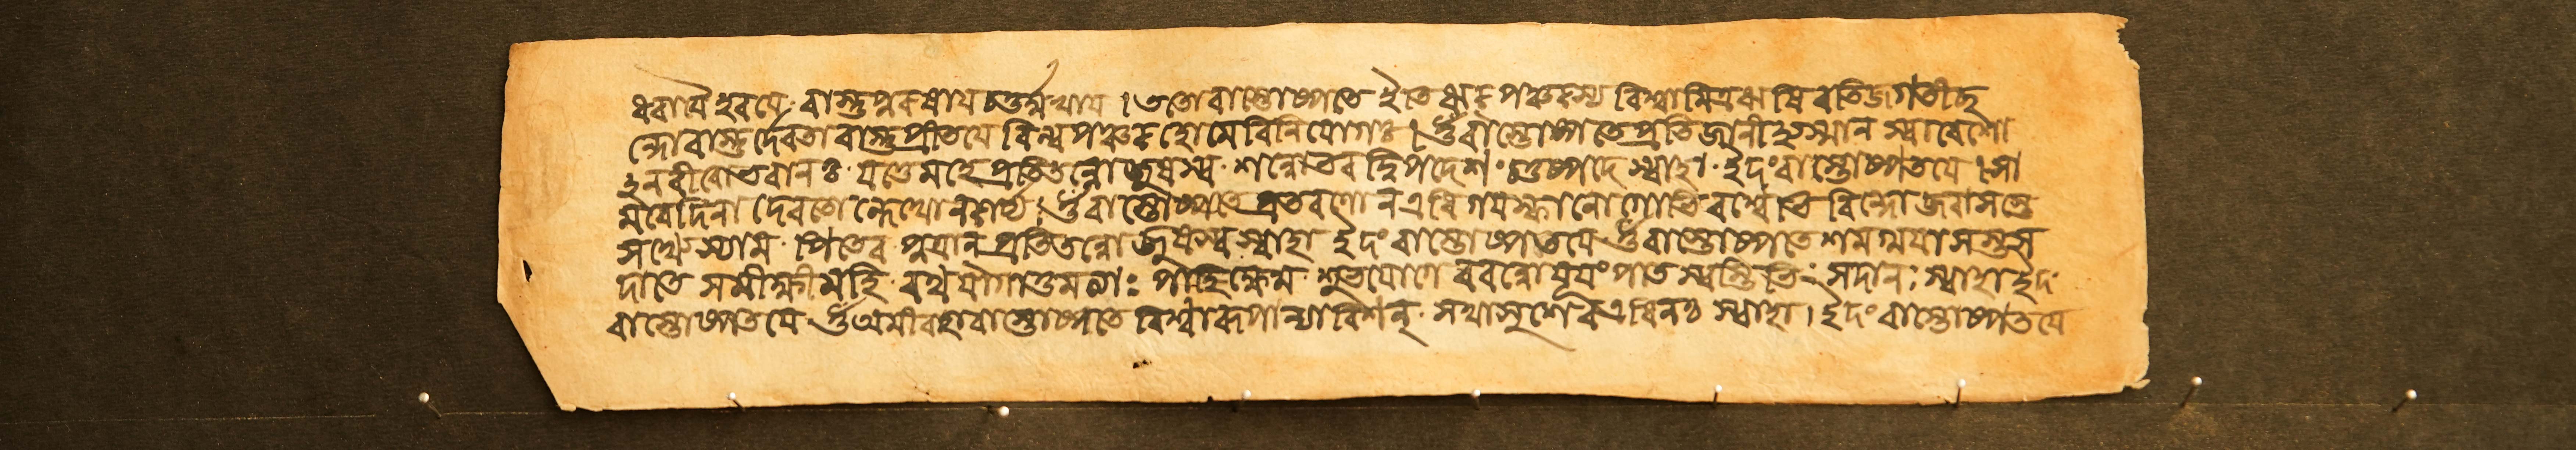 ধরায়ৈ হরয়ে বাস্তুপুরুষায় চতুর্ম্মুখায় । ততো বাস্তোষ্পতে ইতি ঋক্ পঞ্চকস্য বিশ্বামিত্র ঋষি রতিজগতীছ
ন্দো বাস্তুর্দেবতা বাস্তুপ্রীতয়ে বিল্ব পঞ্চক হোমে বিনিয়োগঃ । ওঁ বাস্তোষ্পতে প্রতিজানীহ্যস্মান স্বাবেশো
হনমীবো ভবানঃ যত্তেমহে প্রতিতন্নো জুষস্ব শন্নো ভব দ্বিপদেশং চতুষ্পদে স্বাহা ইদং বাস্তোষ্পতয়ে ।
ওঁ বাস্তোষ্পতে প্রতরণো ন এধি গয়স্ফানো গোভিরশ্বেভিরিন্দো অজরাসস্তে
সখ্যে স্যাম পিতেব পুত্রান প্রতিতন্নো জুষস্ব স্বাহা ইদং বাস্তোষ্পতয়ে ওঁ বাস্তোষ্পতে শগ্ময়া স
দাতে সক্ষীমহি গাতুমত্যাঃ পাহি ক্ষেম যোগে বরন্নো যূয়ং পাত স্বস্তিভিঃ সদানঃ স্বাহা ইদং
বাস্তোষ্পতয়ে ওঁ অমীবহা বাস্তোষ্পতে বিশ্বারূপান্যাবিশন্ সখা সুশেব এধিনঃ স্বাহা । ইদং বাস্তোষ্পতয়ে